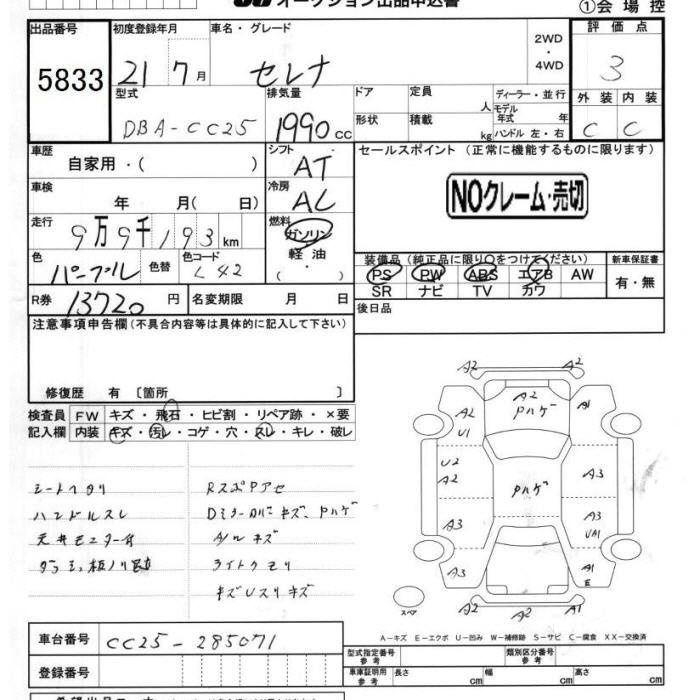 オークション出品申込書
①会場控
出品番号
5833
初度登録年月
21 7月
車名・グレード
セレナ
2WD
・
4WD
評価点
3
外装 内装
C C
型式
DBA-CC25
排気量
1990 cc
ドア
形状
定員
人
積載
kg
ディーラー・並行
モデル
年式 年
ハンドル 左・右
車歴
自家用・( )
シフト
AT
セールスポイント (正常に機能するものに限ります)
NOクレーム・売切
車検
年 月( 日)
冷房
AC
走行
9万9千193km
燃料
ガソリン
軽油
( )
色
パープル
色替
色コード
L42
装備品(純正品に限り○をつけてください)
PS PW ABS エアB AW
SR ナビ TV カワ
新車保証書
有・無
R券
13720円
名変期限 月 日
後日品
注意事項申告欄(不具合内容等は具体的に記入して下さい)
修復歴 有〔箇所 〕
検査員 FW キズ・飛石・ヒビ割・リペア跡・×要
記入欄 内装 キズ・汚レ・コゲ・穴・スレ・キレ・破レ
シートヘタリ
ハンドルスレ
RスポPアセ
Dミラーカバーキズ、Pハゲ
A/Wキズ
ライトクモリ
キズUスリキズ
A2 A2
A2
Pハゲ
A2
U1
A1
U2
A2
Pハゲ
A3
A3
A3
UA1
A3
A1
E
A2 A2 A1
スペア
A-キズ E-エクボ U-凹み W-補修跡 S-サビ C-腐食 XX-交換済
車台番号
CC25-285071
登録番号
型式指定番号
参考
類別区分番号
参考
車庫証明用
参考
長さ cm
幅 cm
高さ cm